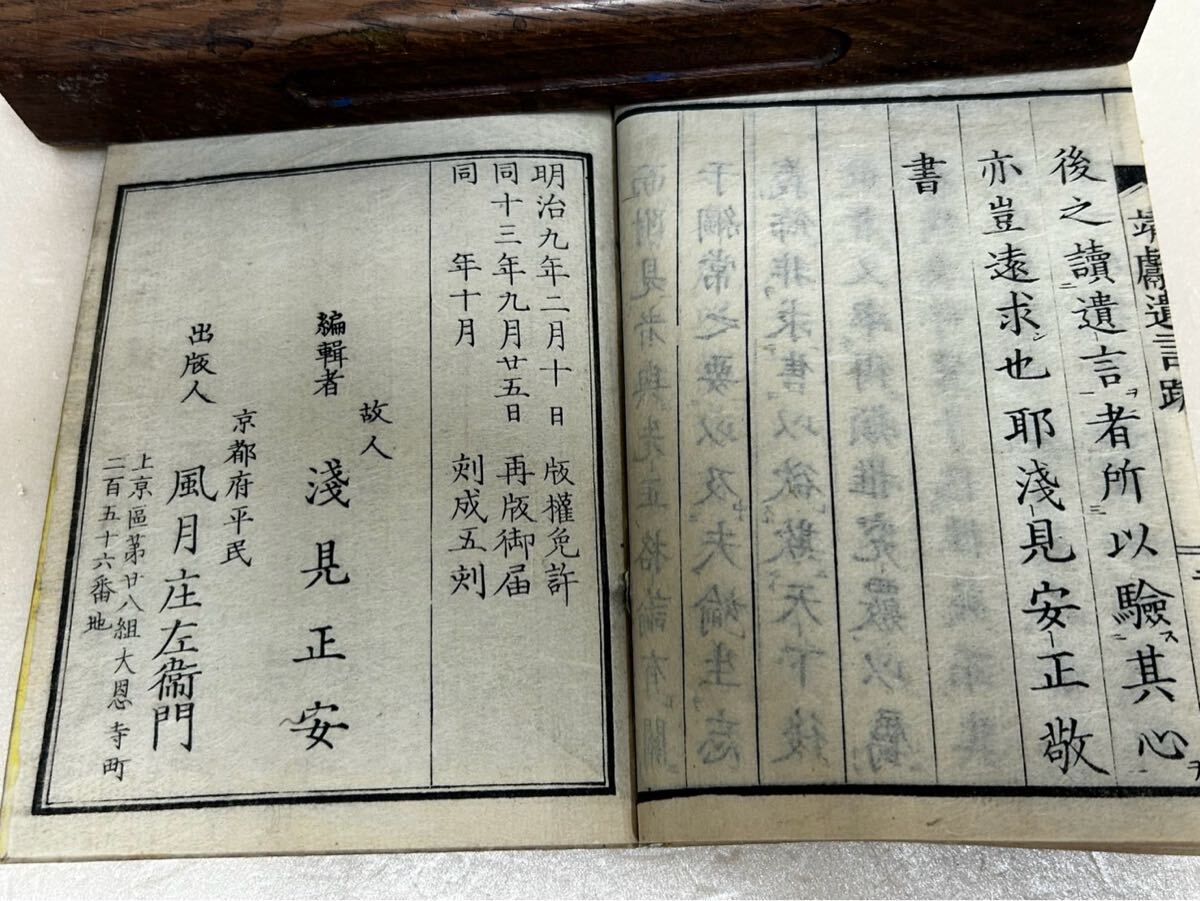 靖獻遺言跋
後之讀遺言者所以驗其心
亦豈遠求也耶淺見安正敬
書
明治九年二月十日 版權免許
同十三年九月廿五日 再版御届
同 年十月 刻成五刻
故人
編輯者 淺見正安
京都府平民
出版人 風月庄左衞門
上京區第廿八組大恩寺町
二百五十六番地